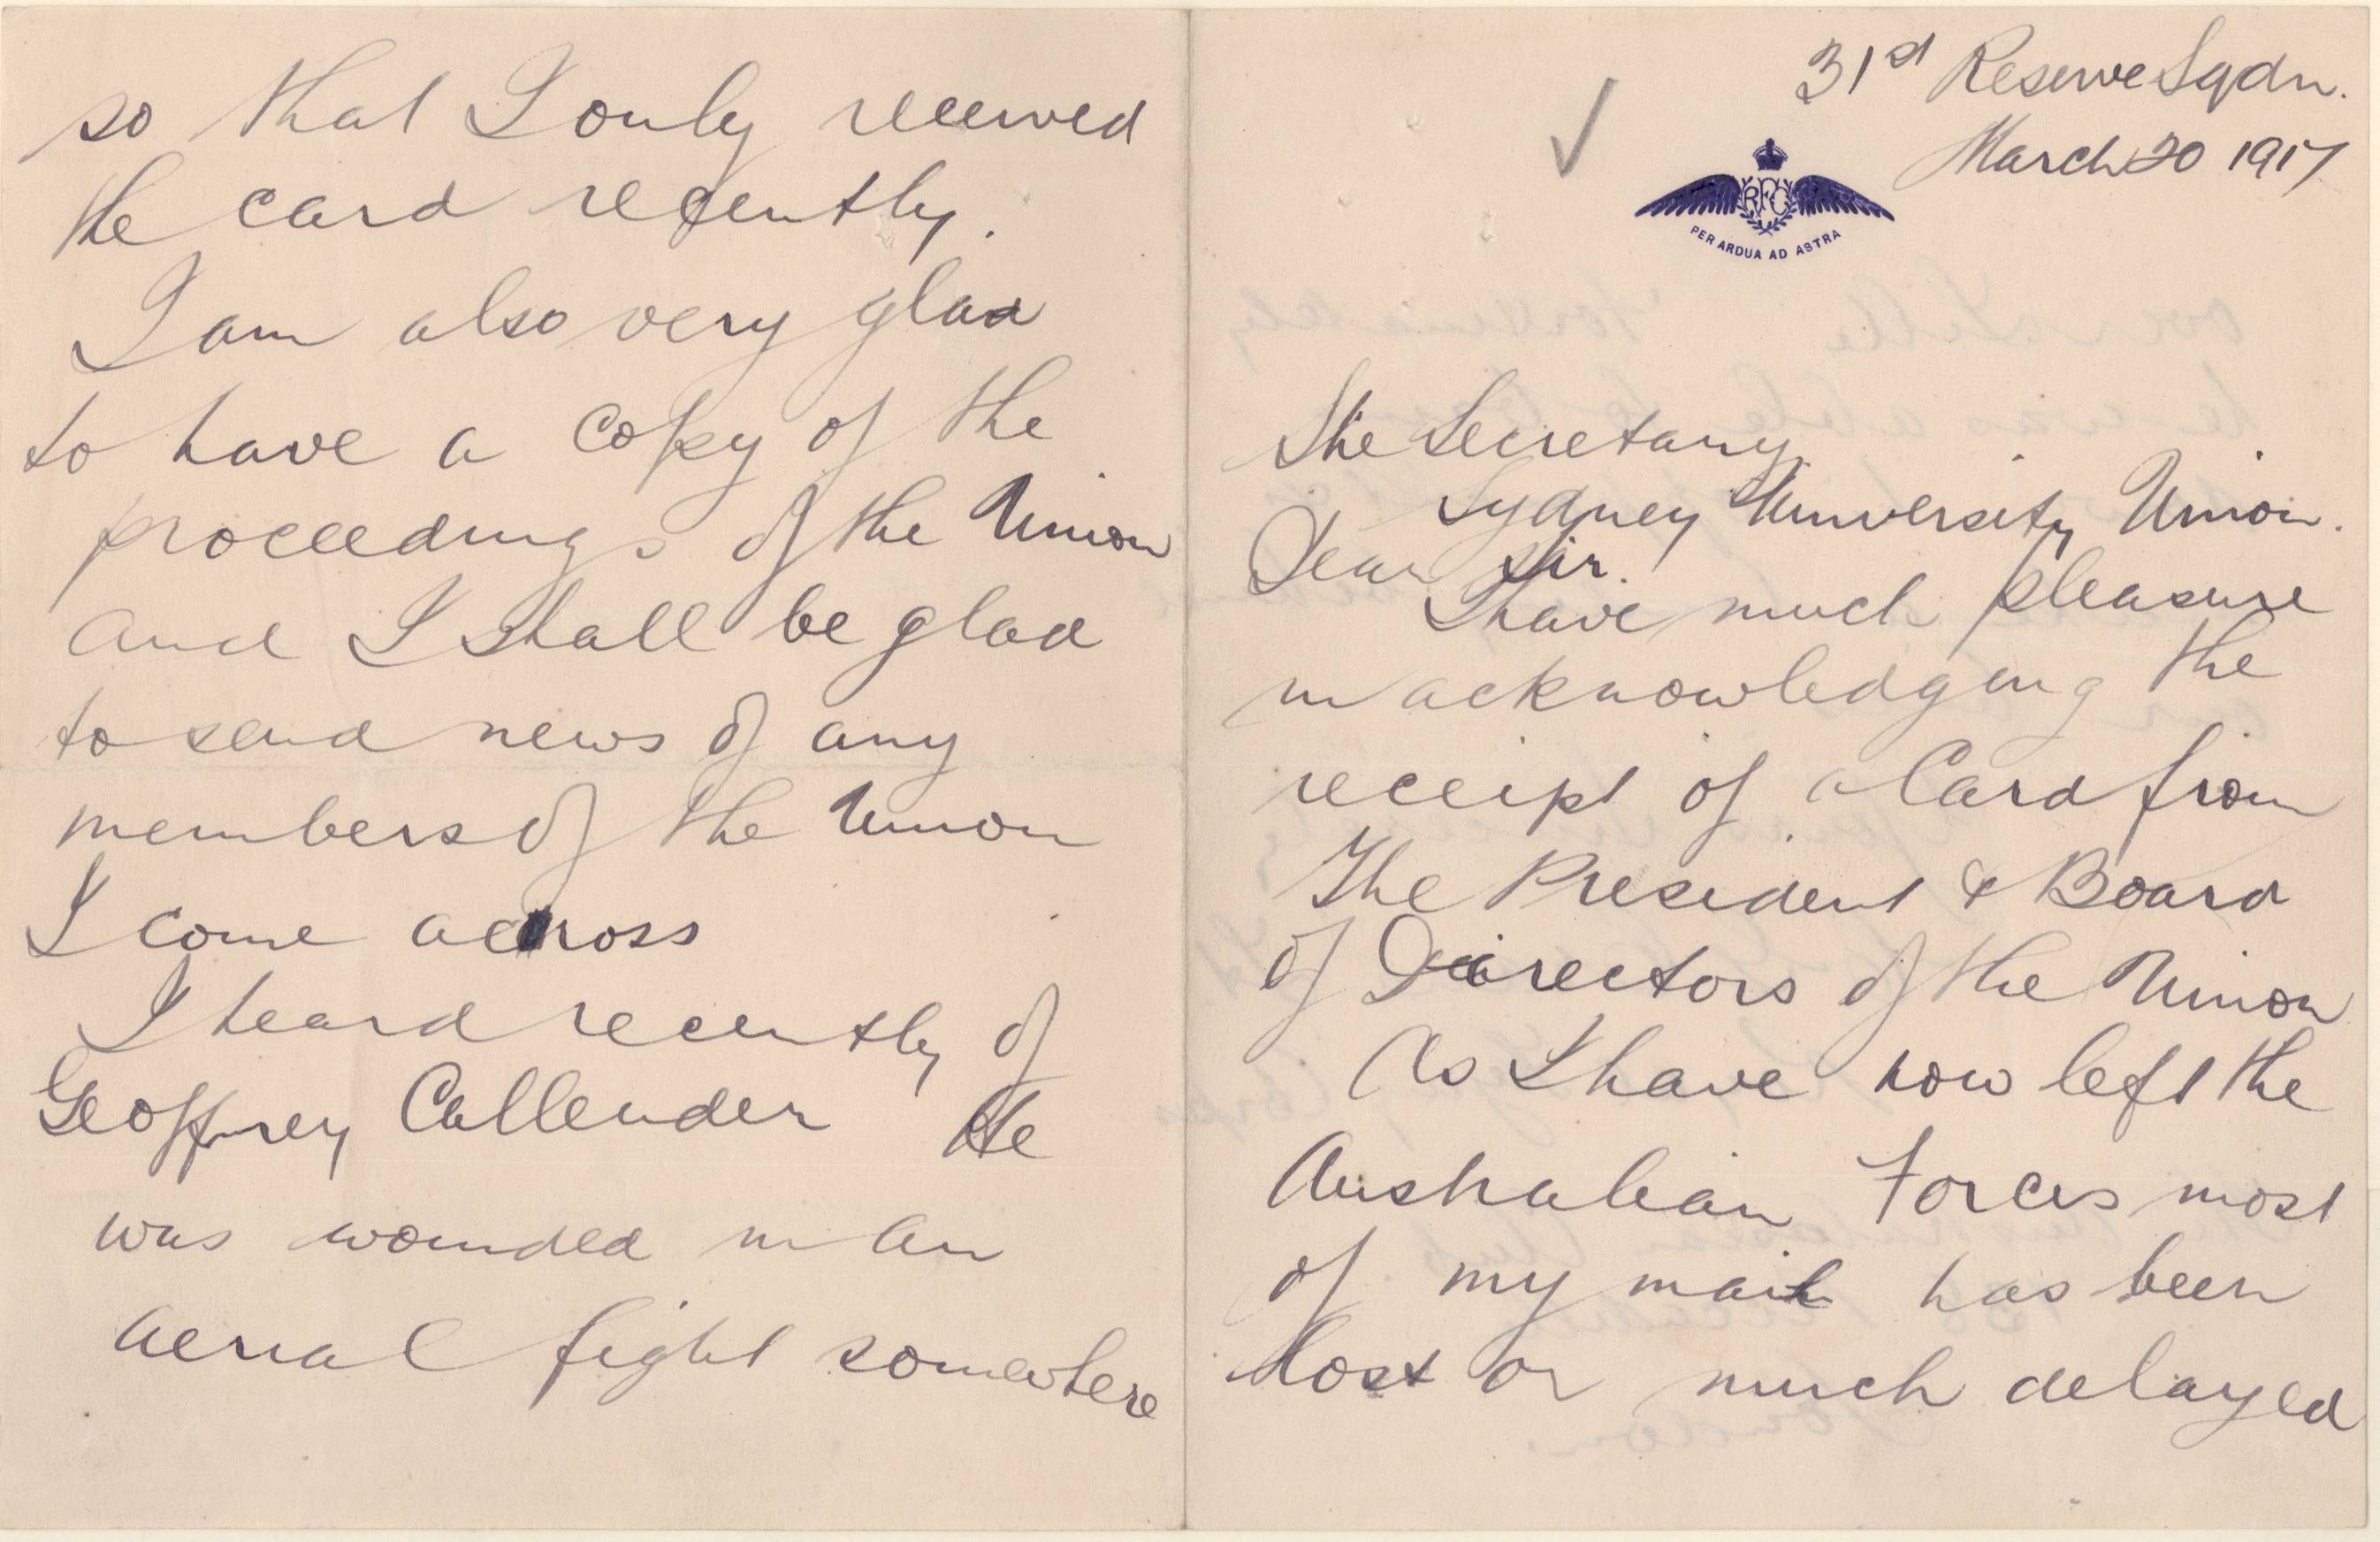 31st Reserve Sqdn.
March 20 1917
RFC
PER ARDUA AD ASTRA
The Secretary
Sydney University Union.
Dear Sir.
I have much pleasure
in acknowledging the
receipt of a Card from
The President & Board
of Directors of the Union
As I have now left the
Australian Forces most
of my mail has been
lost or much delayed
so that I only received
the card recently.
I am also very glad
to have a copy of the
proceedings of the Union
and I shall be glad
to send news of any
members of the Union
I come across
I heard recently of
Geoffrey Callender He
was wounded in an
aerial fight somewhere